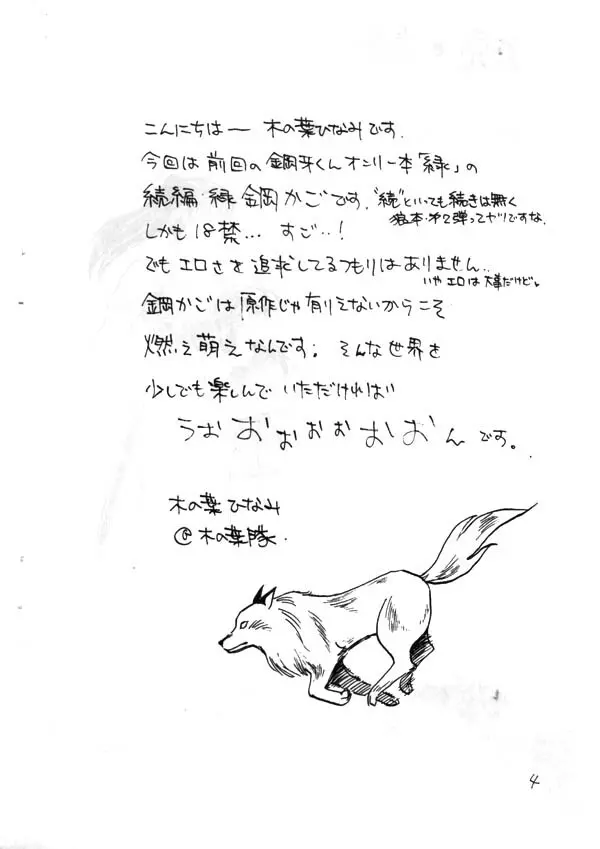 こんにちはー 木の葉ひなみです.
今回は前回の鋼牙くんオンリー本「緑」の
続編・緑 鋼かごです. "続"といっても続きは無く
しかも18禁… すご…!
でもエロさを追求してるつもりはありません..
いやエロは大事だけど。
鋼かごは原作じゃ有りえないからこそ
燃え萌えなんです。 そんな世界を
少しでも楽しんでいただければ
うおおぉぉぉおおんです。
木の葉ひなみ
@木の葉隊.
4